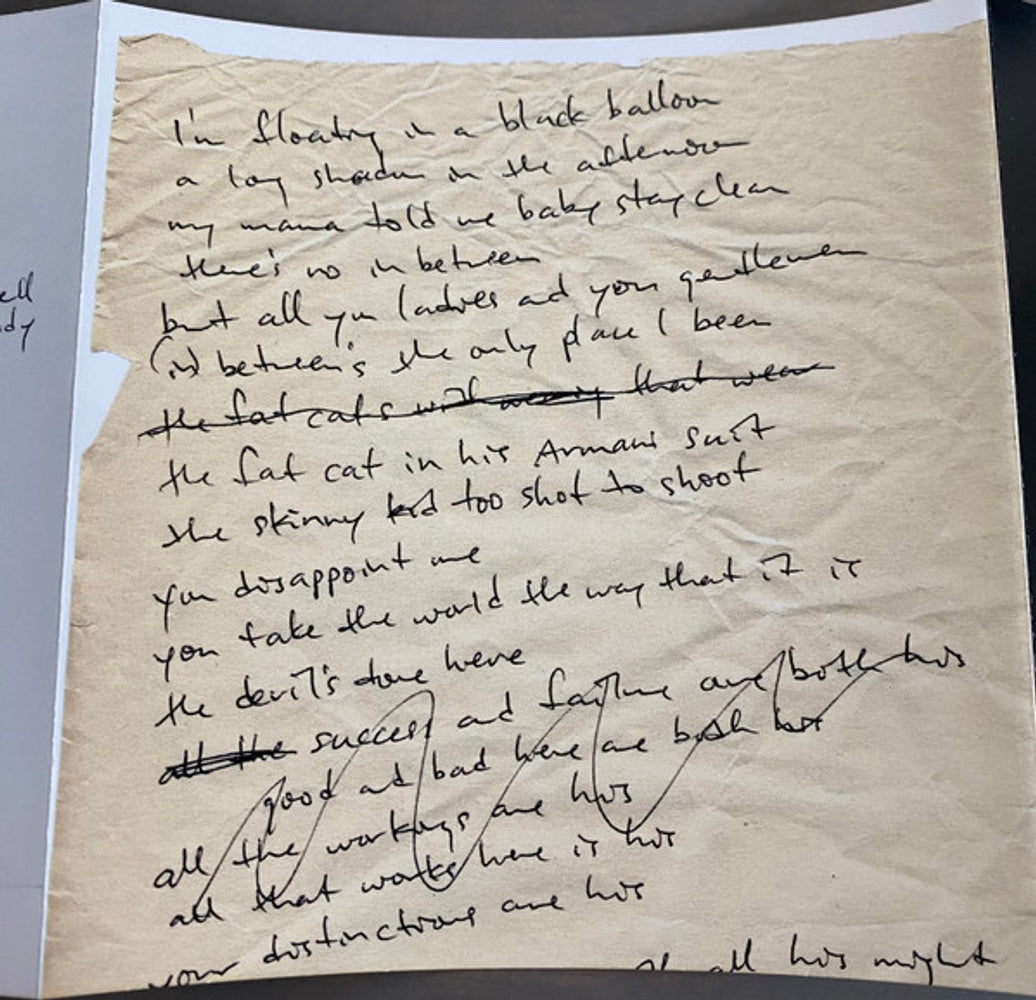 ell
dy
I'm floating in a black balloon
a long shadow in the afternoon
my mama told me baby stay clean
there's no in between
but all you ladies and you gentlemen
(in) between's the only place I been
the fat cats with that wear
the fat cat in his Armani suit
the skinny kid too shot to shoot
you disappoint me
you take the world the way that it is
the devil's done here
all the success and failure are both his
good and bad here are both his
all the workings are his
all that works here is his
your distinctions are his
all his might